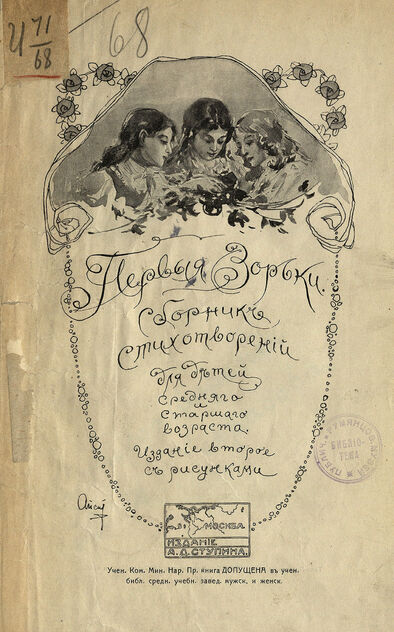 И 71
68
68
Первыя Зорьки.
сборникъ
стихотвореній
для дѣтей
средняго
и
старшаго
возраста.
Изданіе второе
съ рисунками
МОСКВА.
ИЗДАНІЕ
А.Д.СТУПИНА.
ПУБЛИЧ. РУМЯНЦОВ. МУЗЕЙ
БИБЛІО-
ТЕКА
Учен. Ком. Мин. Нар. Пр. книга ДОПУЩЕНА въ учен.
библ. средн. учебн. завед. мужск. и женск.